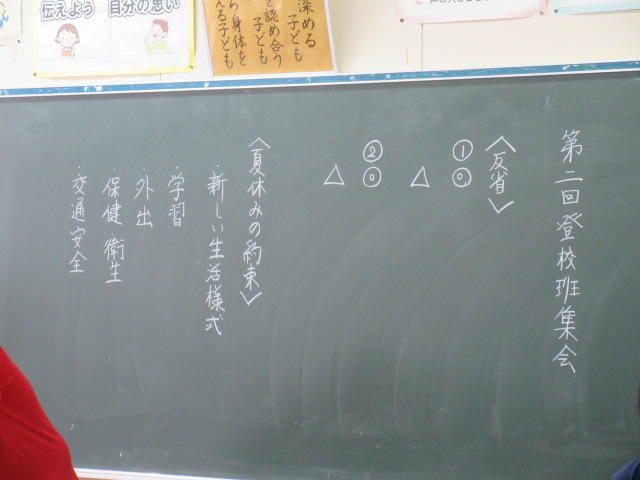 伝えよう 自分の思い
深める
子ども
を認め合う
子ども
ら身体を
える子ども
第二回登校班集会
〈反省〉
①◎
△
②◎
△
〈夏休みの約束〉
・新しい生活様式
・学習
・外出
・保健衛生
・交通安全